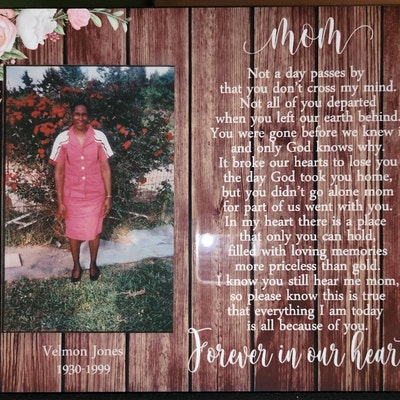 mom
Not a day passes by
that you don't cross my mind.
Not all of you departed
when you left our earth behind.
You were gone before we knew i
and only God knows why.
It broke our hearts to lose you
the day God took you home,
but you didn't go alone mom
for part of us went with you.
In my heart there is a place
that only you can hold,
filled with loving memories
more priceless than gold.
I know you still hear me mom,
so please know this is true
that everything I am today
is all because of you.
Forever in our hear
Velmon Jones
1930-1999